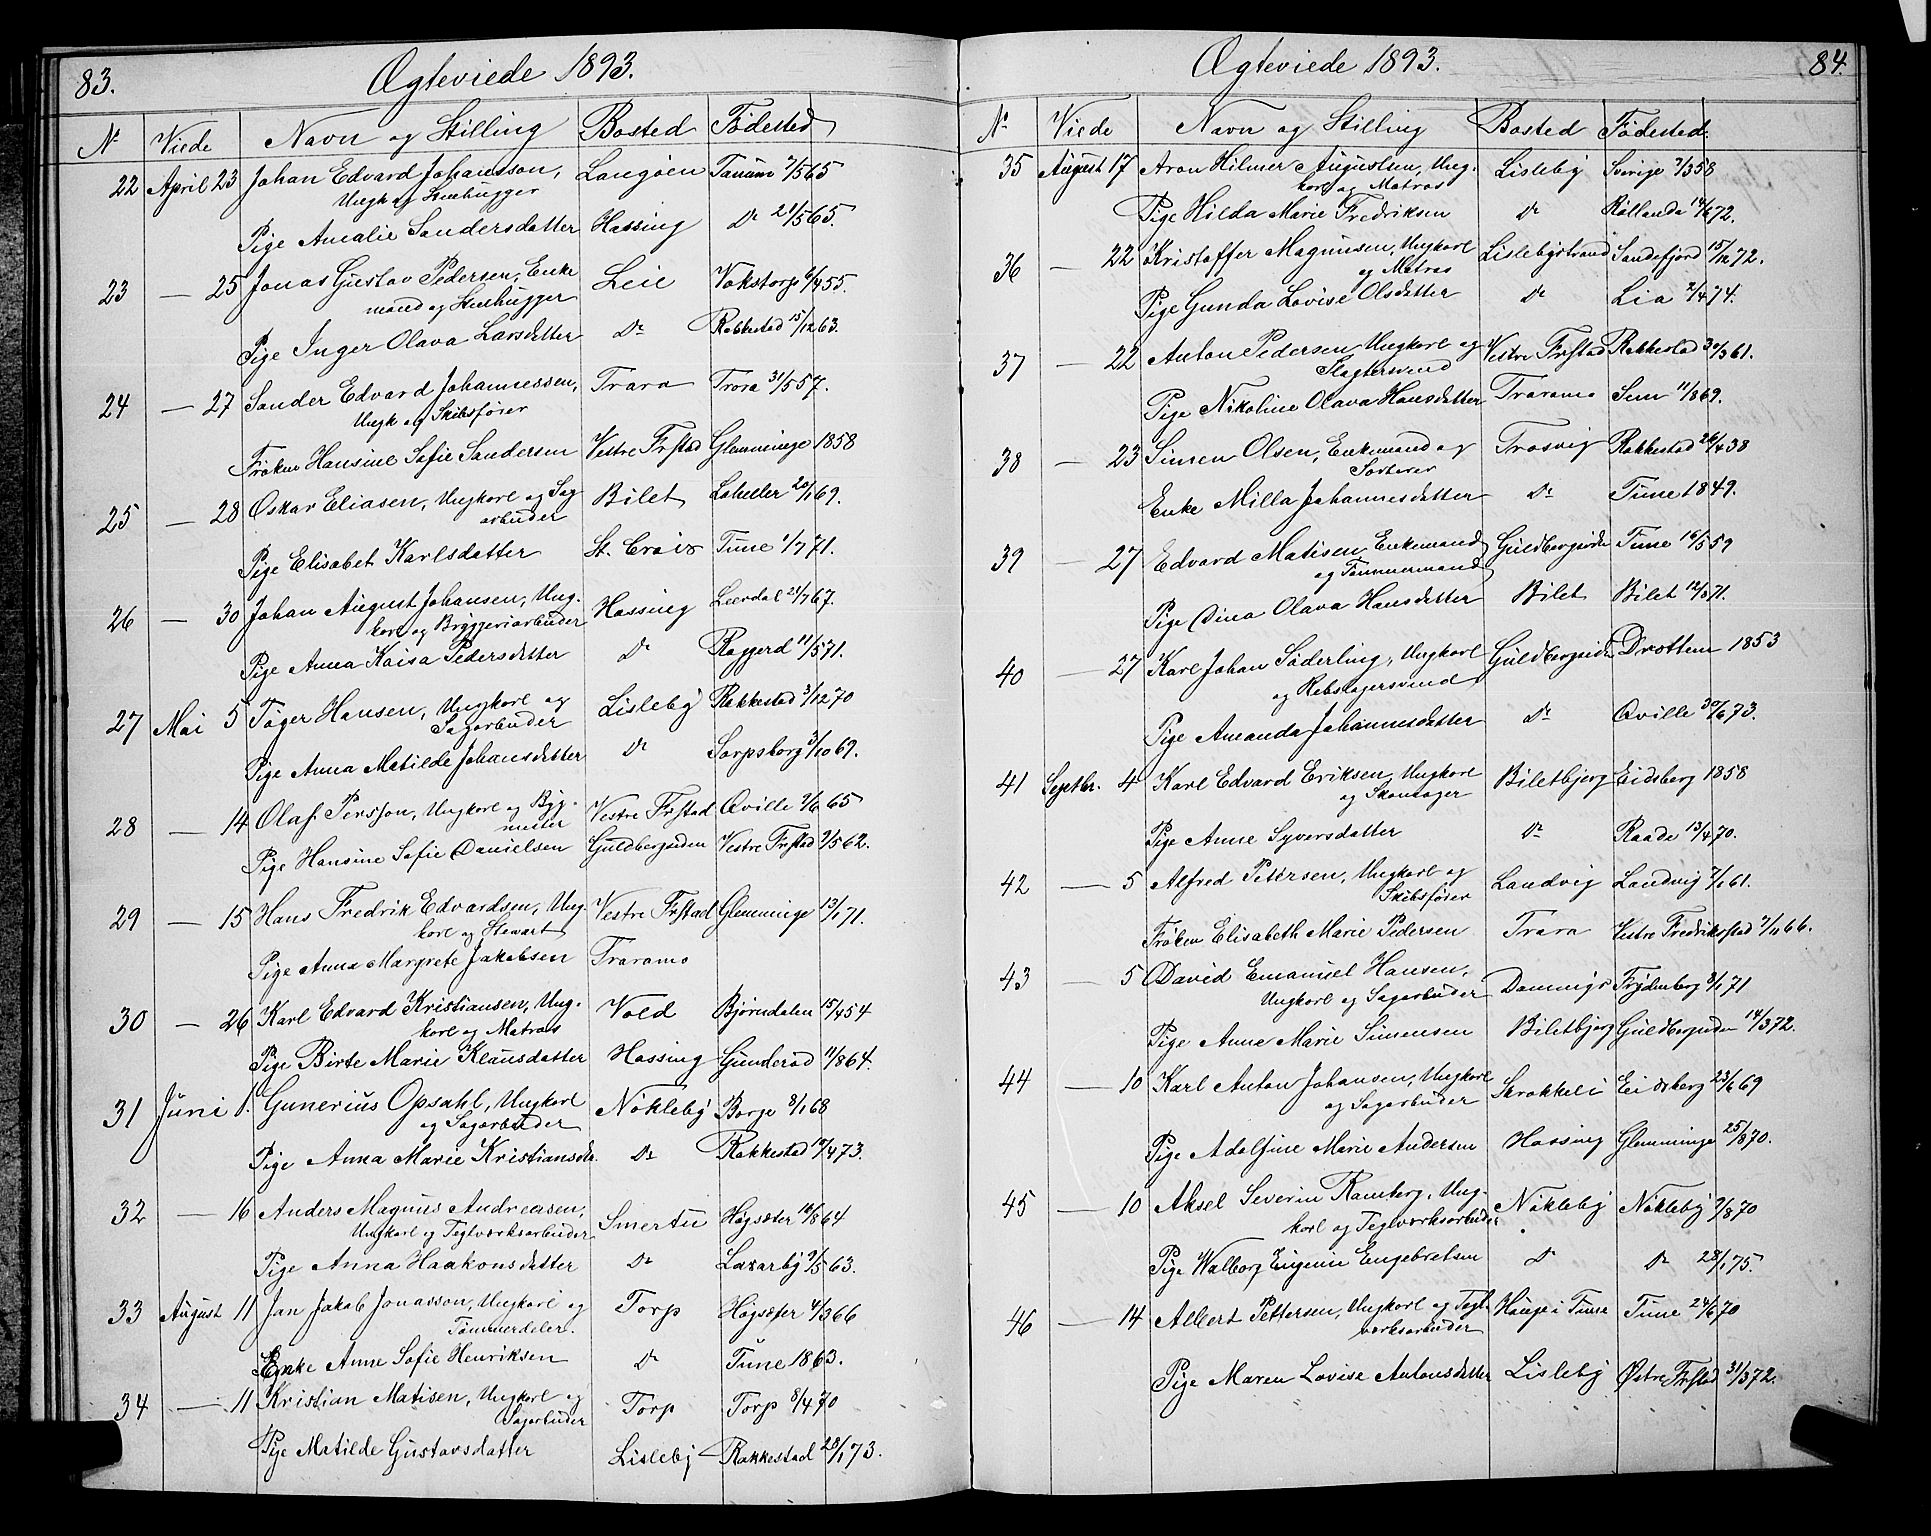 83.
Ægteviede 1893.
No Viede Navn og Stilling Bosted Fødested
22 April 23 Johan Edvard Johansson, Langøen Tanum 7/5 65
Ungk og Stenhugger
Pige Amalie Sandersdatter Hassing Do 21/5 65.
23 — 25 Jonas Gustav Pedersen, Enke Leie 55.
mand og Stenhugger
Pige Inger Olava Larsdatter Do Rakkestad 15/12 63.
24 — 27 Sander Edvard Johannessen, Trara Trara 31/5 57.
Ungk og Skibsfører
Frøken Hansine Sofie Sandersen Vestre Frstad Glemminge 1858
25 — 28 Oskar Eliasen, Ungkarl og Sag Bilet 69.
arbeider
Pige Elisabet Karlsdatter St. Croix Tune 1/7 71.
26 — 30 Johan August Johansen, Ung- Hassing 67.
karl og Bryggeriarbeider
Pige Anna Kaisa Pedersdatter Do Raggerd 11/5 71.
27 Mai 5 Tøger Hansen, Ungkarl og Lisleby Rakkestad 3/12 70
Sagarbeider
Pige Anna Matilde Johansdatter Do Sarpsborg 3/10 69.
28 — 14 Olaf Persson, Ungkarl og Byg- Vestre Frstad Qville 9/6 65
mester
Pige Hansine Sofie Danielsen Guldbergsiden Vestre Frstad 9/5 62.
29 — 15 Hans Fredrik Edvardsen, Ung- Vestre Frstad Glemminge 13/1 71.
karl og Stewart
Pige Anna Margrete Jakobsen Traramo
30 — 26 Karl Edvard Kristiansen, Ung- Vold Bjørndalen 15/4 54
karl og Matros
Pige Birte Marie Klausdatter Hassing Gunderød 11/8 64.
31 Juni 1. Gunerius Opsahl, Ungkarl Nøkleby Borge 8/1 68
og Sagarbeider
Pige Anna Marie Kristiansdtr. Do Rakkestad 73.
32 — 16 Anders Magnus Andreasen, Smertu Høgsæter 64
Ungkarl og Teglværksarbeider
Pige Anna Haakonsdatter Do Laxarby 9/5 63.
33 August 11 Jan Jakob Jonasson, Ungkarl og Torp Høgsæter 4/3 66
Tømmerdeler.
Enke Anne Sofie Henriksen Do Tune 1863.
34 — 11 Kristian Matisen, Ungkarl og Torp Torp 8/4 70
Sagarbeider
Pige Matilde Gustavsdatter Lisleby Rakkestad 28/1 73.
84.
Ægteviede 1893.
No Viede Navn og Stilling Bosted Fødested.
35 August 17 Aron Hilmer Augustsen, Ung- Lisleby Sverige 7/3 58
karl og Matros
Pige Hilda Marie Fredriksen Do 72.
36 — 22 Kristoffer Magnusen, Ungkarl Lislebystrand Sandefjord 15/12 72.
og Matros
Pige Gunda Lovise Olsdatter Do Lia 2/4 74.
37 — 22 Anton Pedersen, Ungkarl og Vestre Frstad Rakkestad 30/3 61.
Slagtersvend
Pige Nikoline Olava Hansdatter Traramo Sem 11/1 69.
38 — 23 Simen Olsen, Enkemand og Trosvig Rakkestad 26/4 38
Sorterer
Enke Milla Johannesdatter Do Tune 1849.
39 — 27 Edvard Matisen, Enkemand Guldbergsiden Tune 16/5 59
og Tømmermand
Pige Dina Olava Hansdatter Bilet Bilet 71.
40 — 27 Karl Johan Søderling, Ungkarl Guldbergsiden Drottem 1853
og Rebslagersvend
Pige Amanda Johannesdatter Do Qville 30/6 73.
41 Septbr. 4 Karl Edvard Eriksen, Ungkarl Biletbjerg Eidsberg 1858
og Skomager
Pige Anne Syversdatter Do Raade 13/4 70.
42 — 5 Alfred Petersen, Ungkarl og Landvig Landvig 61.
Skibsfører
Frøken Elisabeth Marie Pedersen Trara Vestre Fredrikstad 7/11 66.
43 — 5 David Emanuel Hansen, Frydenberg 8/1 71
Ungkarl og Sagarbeider
Pige Anna Marie Simensen Biletbjerg Guldbergsiden 14/3 72.
44 — 10 Karl Anton Johansen, Ungkarl Skrakkeli Eidsberg 23/6 69
og Sagarbeider
Pige Adolfine Marie Andersen Hassing Glemminge 25/8 70.
45 — 10 Aksel Severin Ramberg, Ung- Nøkleby Nøkleby 9/8 70
karl og Teglværksarbeider
Pige Walborg Eugenie Engebretsen Do Do 28/1 75.
46 — 14 Albert Pettersen, Ungkarl og Tegl- Hauge i Tune Tune 24/6 70
værksarbeider
Pige Maren Lovise Antonsdatter Lisleby Østre Frstad 31/3 72.